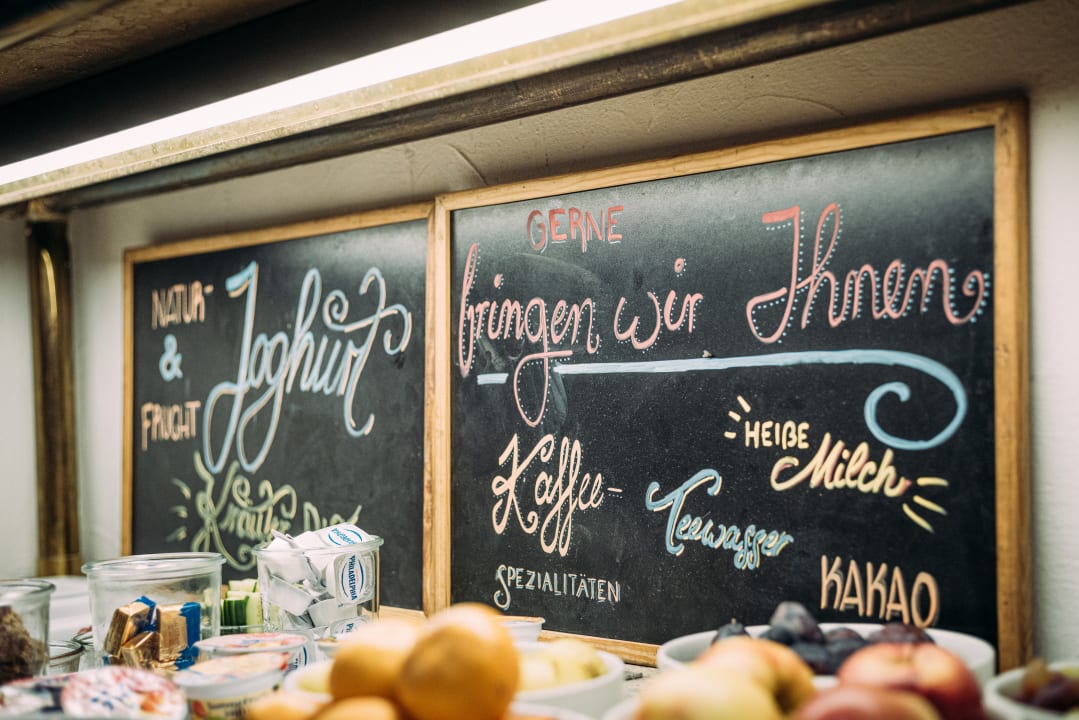 NATUR-
&
FRUCHT
Joghurt
Kräuter
GERNE
bringen wir Ihnen
Kaffee-
SPEZIALITÄTEN
Teewasser
HEIßE
Milch
KAKAO
PHILADELPHIA